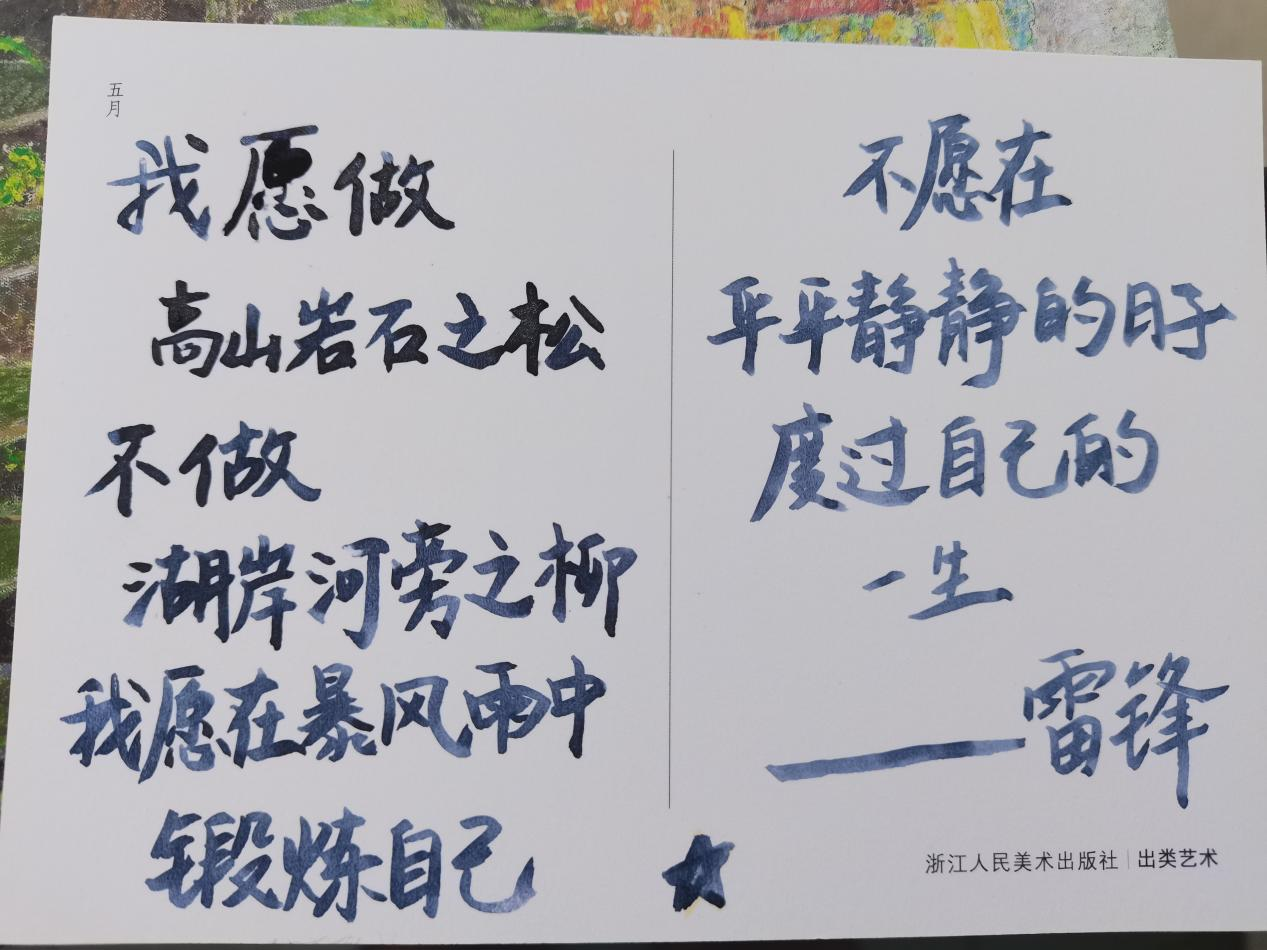 五月
我愿做
高山岩石之松
不做
湖岸河旁之柳
我愿在暴风雨中
锻炼自己
不愿在
平平静静的日子
度过自己的
一生
——雷锋
浙江人民美术出版社｜出类艺术